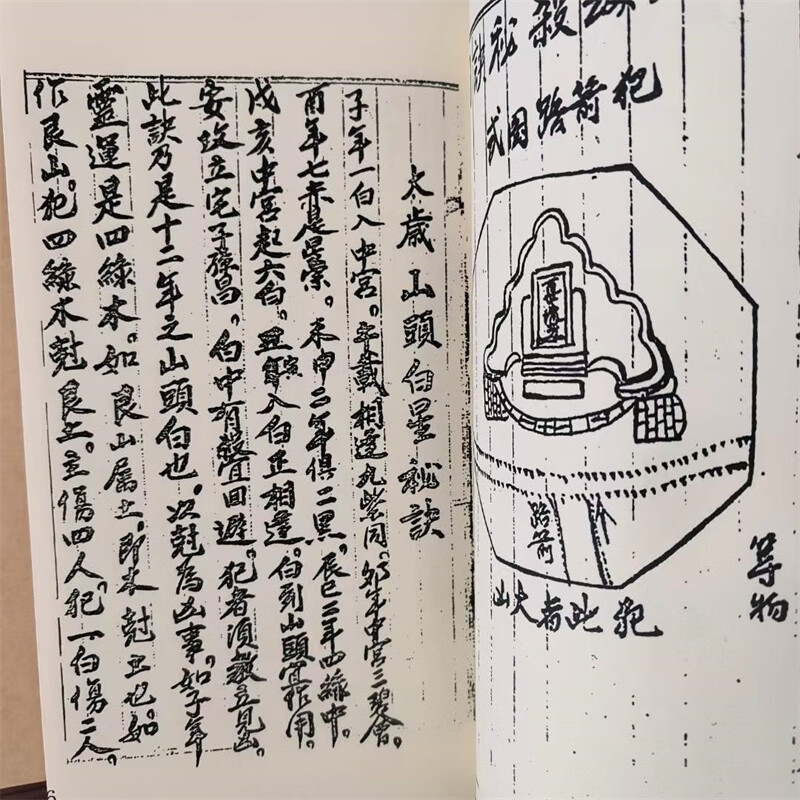 殺祕訣
犯箭路圖式
路箭
犯此者大凶
等物
太歲山頭白星祕訣
子年一白入中宮。載相逢九紫同。卯年中宮三碧會。
酉年七赤是昌榮。未申二年俱二黑。辰巳二年四綠中。
戊亥中宮起六白。入白正相逢。白到山頭宜作用。
安坟立宅子孫昌。白中有殺宜回避。犯者須教立見凶。
此訣乃是十二年之山頭白也。次尅為凶事。如子年
靈運是四綠木。如艮山屬土。即木尅土也。如
作艮山。犯四綠木尅艮土。主傷四人。犯一白傷二人。